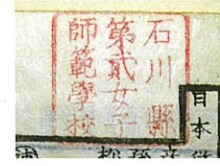 石川縣
第貳女子
師範學校
日本